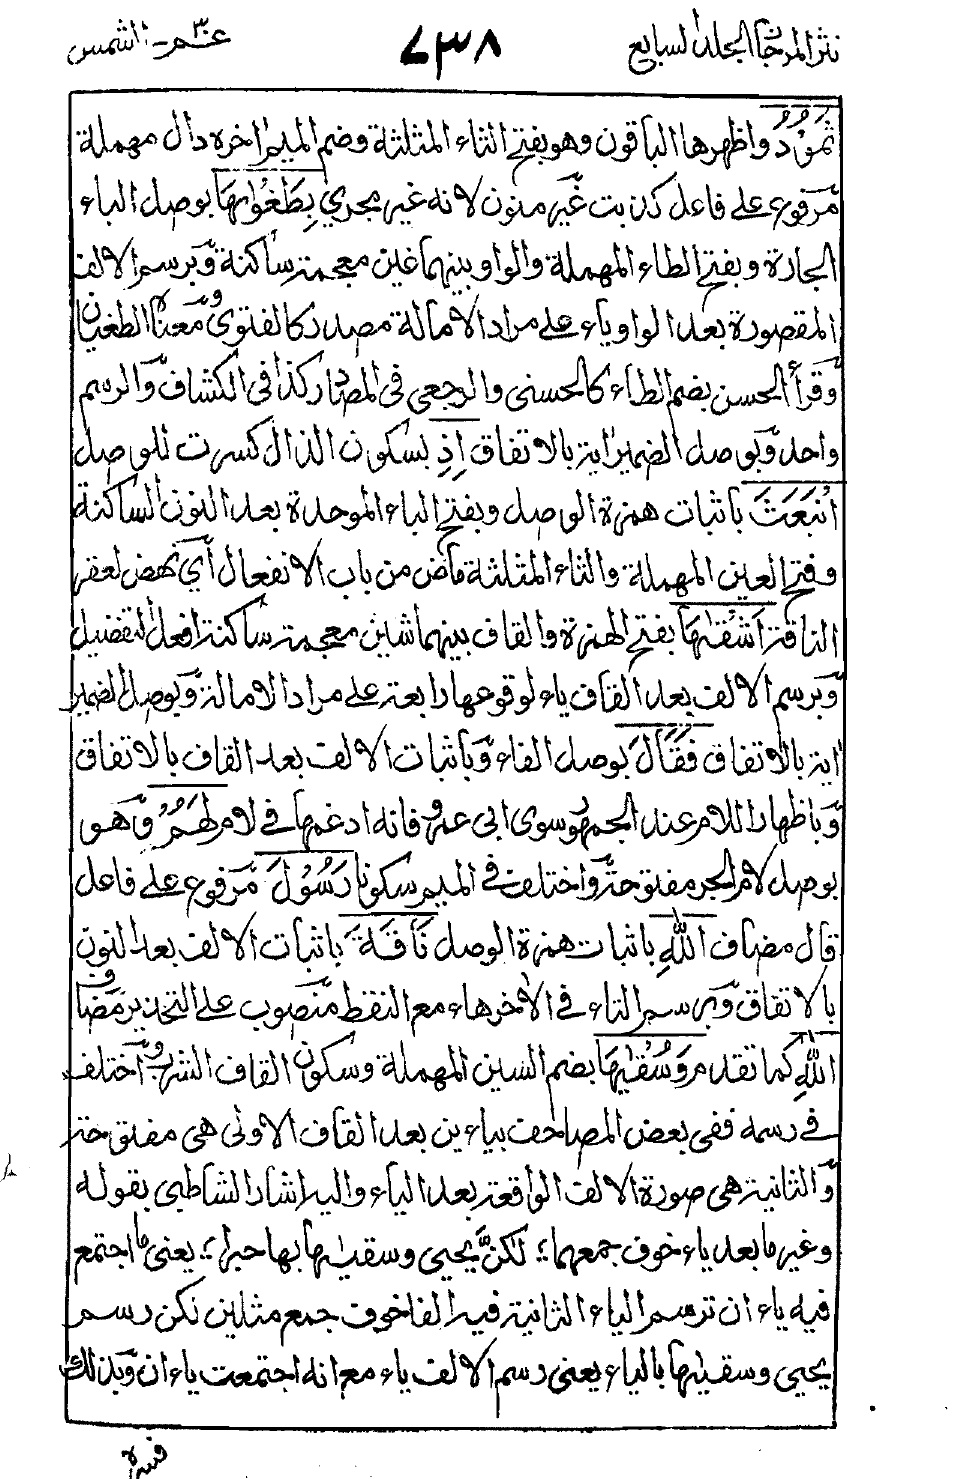 نثر المرجان المجلد السابع
٧٣٨
عم ٣٠ - الشمس
ثَمُوْدُ واظهرها الباقون وهو بفتح الثاء المثلثة وضم الميم اخره دال مهملة
مرفوع على فاعل كذبت غير منون لانه غير مجري بِطَغْوٰىهَا بوصل الباء
الجارة وبفتح الطاء المهملة والواو بينهما غين معجمة ساكنة وبرسم الالف
المقصورة بعد الواو ياء على مراد الامالة مصدر كالفتوى ومعناه الطغيان
وقرأ الحسن بضم الطاء كالحسنى والرجعى فى المصادر كذا فى الكشاف والرسم
واحد وبوصل الضمير اية بالاتفاق اِذِ بسكون الذال كسرت للوصل
انْبَعَثَ باثبات همزة الوصل وبفتح الباء الموحدة بعد النون الساكنة
وفتح العين المهملة والثاء المثلثة ماض من باب الانفعال أي نهض لعقر
الناقة اَشْقٰىهَا بفتح الهمزة والقاف بينهما شين معجمة ساكنة افعل التفضيل
وبرسم الالف بعد القاف ياء لوقوعها رابعة على مراد الامالة وبوصل الضمير
اية بالاتفاق فَقَالَ بوصل الفاء وباثبات الالف بعد القاف بالاتفاق
وباظهار اللام عند الجمهور سوى ابى عمرو فانه ادغمها فى لام لَهُمْ وهو
بوصل لام الجر مفتوحة واختلف فى الميم سكونا رَسُوْلُ مرفوع على فاعل
قال مضاف اللّٰهِ باثبات همزة الوصل نَاقَةَ باثبات الالف بعد النون
بالاتفاق وبرسم التاء فى الأخر هاء مع النقط منصوب على التحذير مضاف
اللّٰهِ كما تقدم وَسُقْيٰهَا بضم السين المهملة وسكون القاف الشرب واختلف
فى رسمه ففى بعض المصاحف بياءين بعد القاف الاولى هى مفتوحة
والثانية هى صورة الالف الواقعة بعد الياء واليه اشار الشاطبى بقوله
وغير ما بعد ياء خوف جمعهما ؛ لكنّ يحيى وسقيٰها بها حبرا ؛ يعنى ما اجتمع
فيه ياء ان ترسم الياء الثانية فيه الفا خوف جمع مثلين لكن رسم
يحيى وسقيٰها بالياء يعنى رسم الالف ياء مع انه اجتمعت ياء ان وبذلك